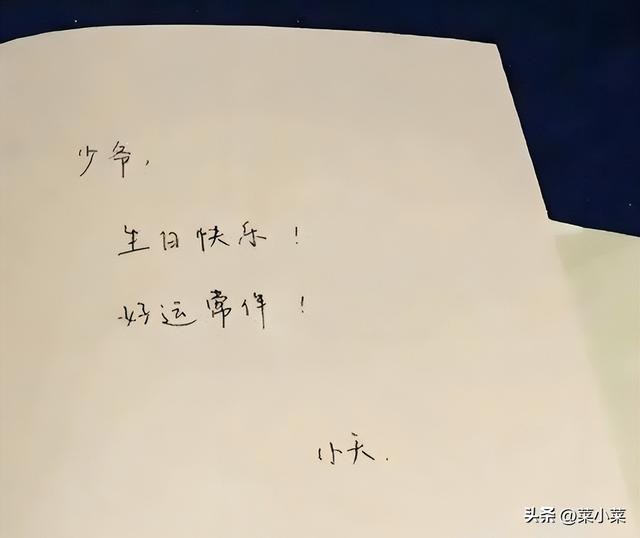 少爷,
生日快乐!
好运常伴!
小天.
头条 @菜小菜